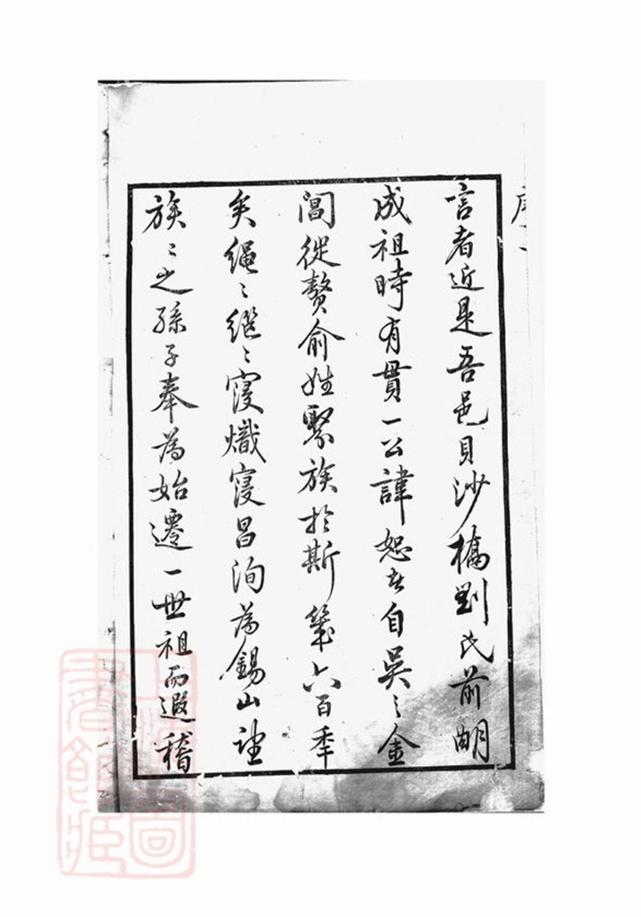 序
言者近是吾邑貝沙橋劉氏前明
成祖時有貫一公諱恕者自吳之金
閶從贅俞姓聚族於斯幾六百秊
矣繩〻繼〻寖熾寖昌洵為錫山望
族〻之孫子奉為始遷一世祖而遐稽
上海圖
書館藏